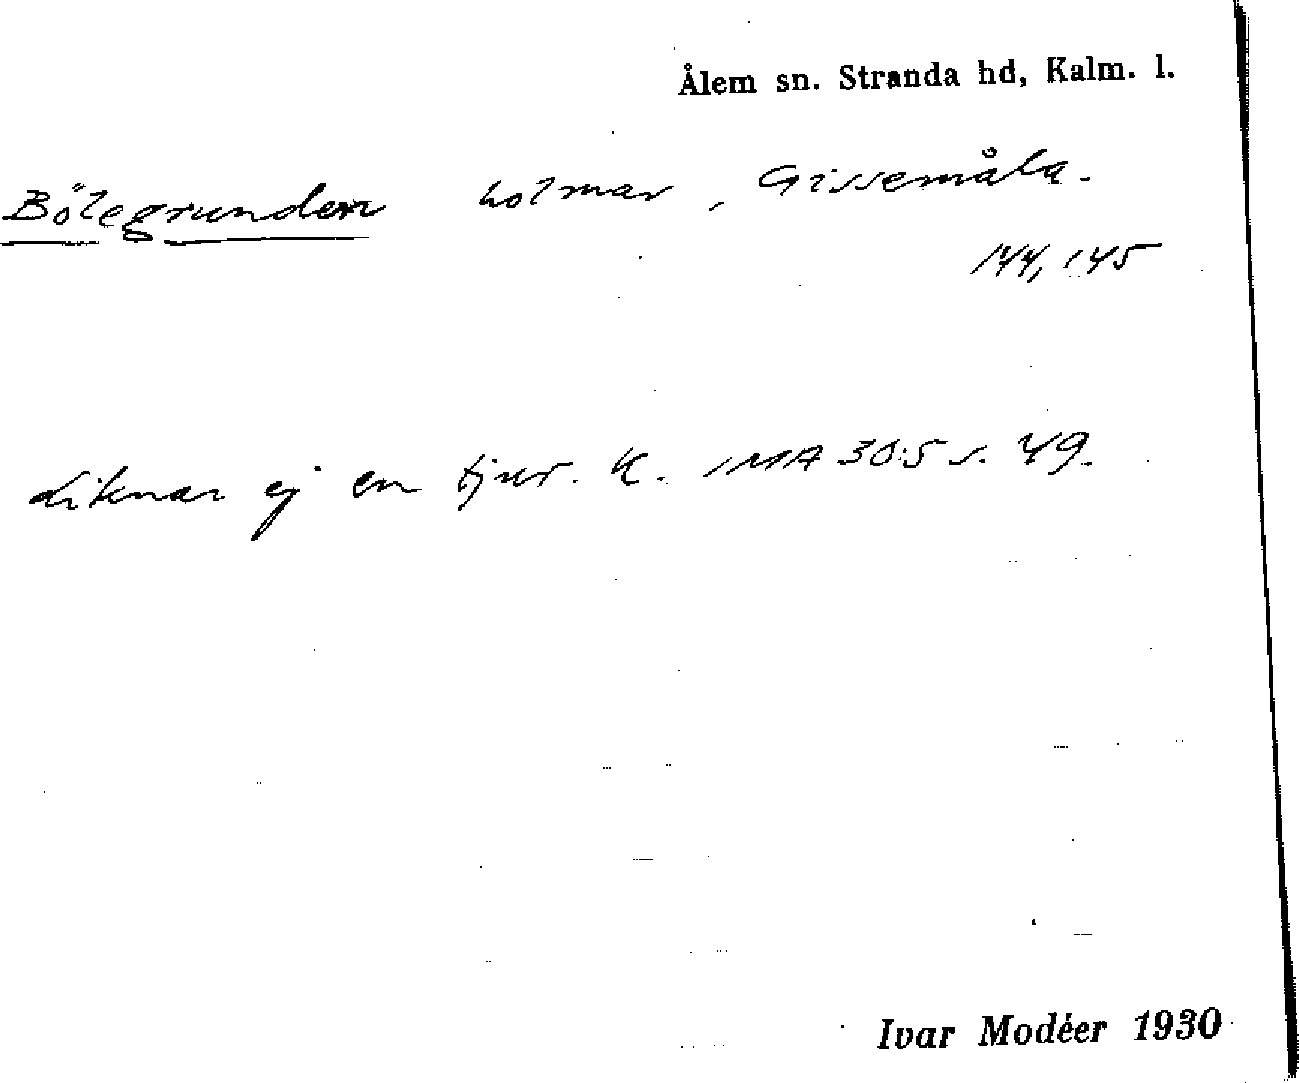 Ålem sn. Stranda hd, Kalm. l.
Bölegrunden holmar, Gissemåla.
144, 145
Liknar ej en tjur. K. IMA 30:5 s. 49.
Ivar Modéer 1930